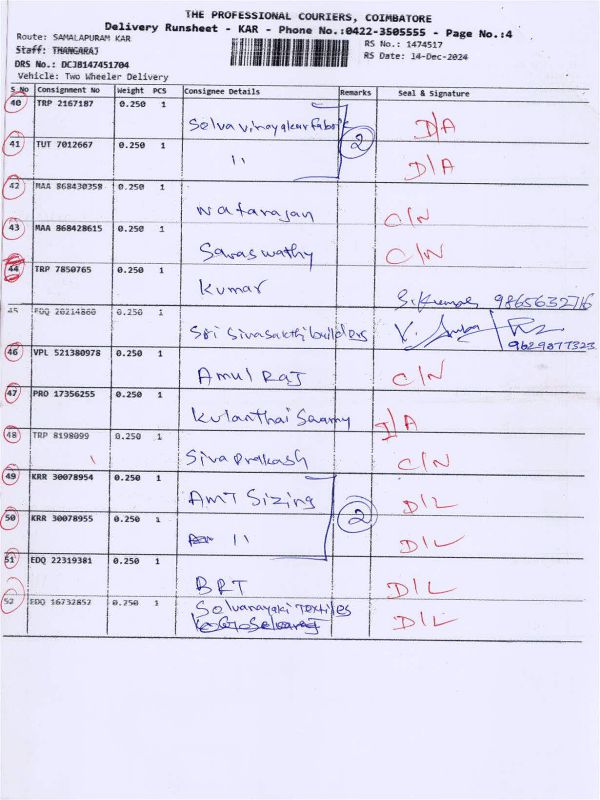 THE PROFESSIONAL COURIERS, COIMBATORE
Delivery Runsheet - KAR - Phone No.:0422-3505555 - Page No.:4
Route: SAMALAPURAM KAR
RS No.: 1474517
Staff: THANGARAJ
RS Date: 14-Dec-2024
DRS No.: DCJB147451704
Vehicle: Two Wheeler Delivery
S No Consignment No Weight PCS Consignee Details Remarks Seal & Signature
40 TRP 2167187 0.250 1
Selvavinayakar fabric D/A
2
41 TUT 7012667 0.250 1
11 D/A
42 MAA 868430358 0.250 1
Natarajan C/N
43 MAA 868428615 0.250 1
Saraswathy C/N
44 TRP 7850765 0.250 1
Kumar 9865632716
45 EDQ 20214860 0.250 1
Sri Sivasakthi builders 9629877323
46 VPL 521380978 0.250 1
Amul Raj C/N
47 PRO 17356255 0.250 1
Kulanthai Swamy D/A
48 TRP 8198099 0.250 1
Sivaprakash C/N
49 KRR 30078954 0.250 1
AMT Sizing D/L
2
50 KRR 30078955 0.250 1
11 D/L
51 EDQ 22319381 0.250 1
BRT D/L
52 EDQ 16732852 0.250 1
Selvanayaki Textiles
D/L